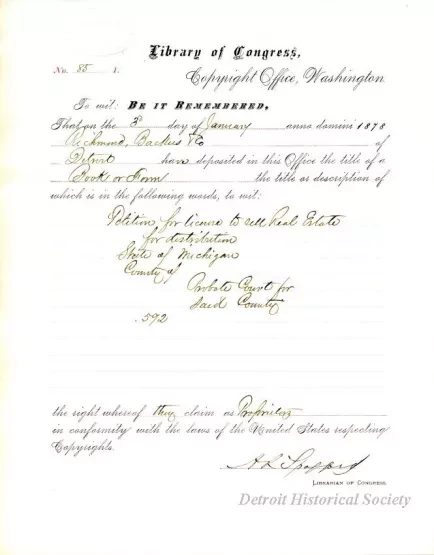 Library of Congress,
No. 85 I.
Copyright Office, Washington.
To wit: BE IT REMEMBERED,
That on the 3d day of January anno domini 1878
Richmond, Backus & Co of
Detroit have deposited in this Office the title of a
Book or Form the title or description of
which is in the following words, to wit:
Petition for license to sell Real Estate
for distribution
State of Michigan
County of
Probate Court for
said County
.592
the right whereof they claim as Proprietors
in conformity with the laws of the United States respecting
Copyrights.
A R Spofford
LIBRARIAN OF CONGRESS.
Detroit Historical Society